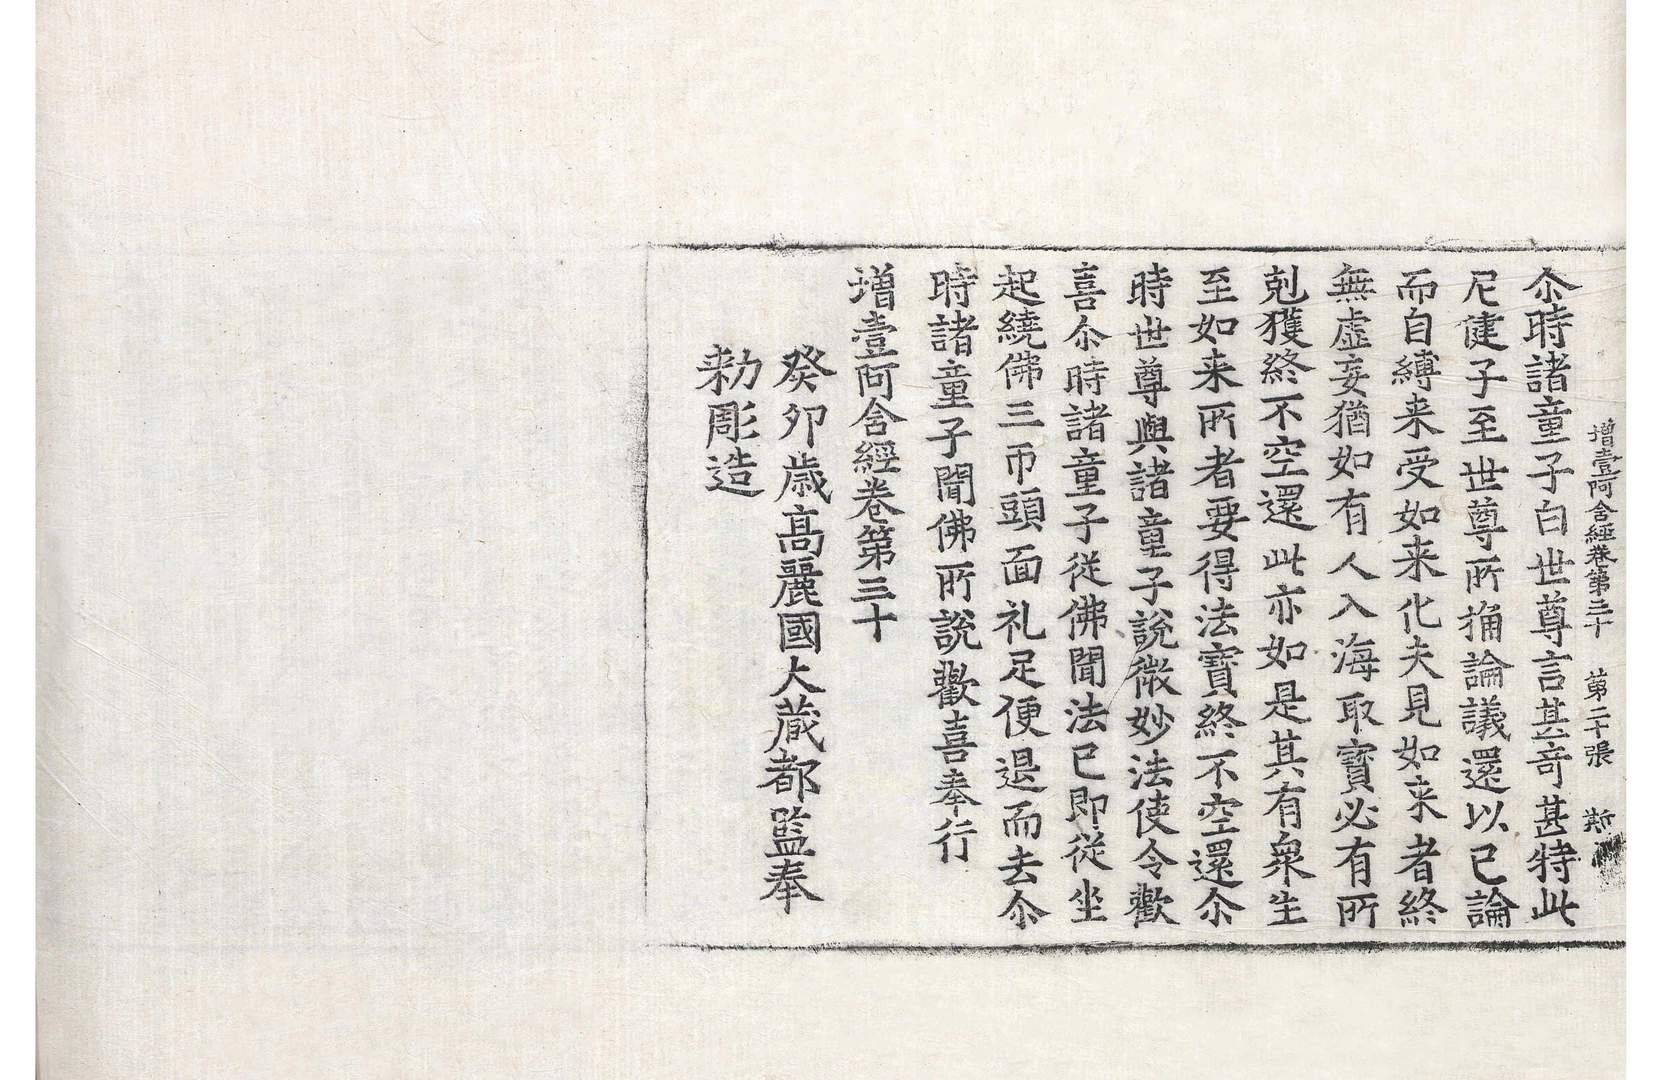 增壹阿含經卷第三十　第二十張　斯
尒時諸童子白世尊言甚奇甚特此
尼健子至世尊所捔論議還以已論
而自縛来受如来化夫見如来者終
無虛妄猶如有人入海取寶必有所
剋獲終不空還此亦如是其有衆生
至如来所者要得法寶終不空還尒
時世尊與諸童子說微妙法使令歡
喜尒時諸童子從佛聞法已即從坐
起繞佛三帀頭面礼足便退而去尒
時諸童子聞佛所說歡喜奉行
增壹阿含經卷第三十
癸卯歳高麗國大藏都監奉
勑彫造